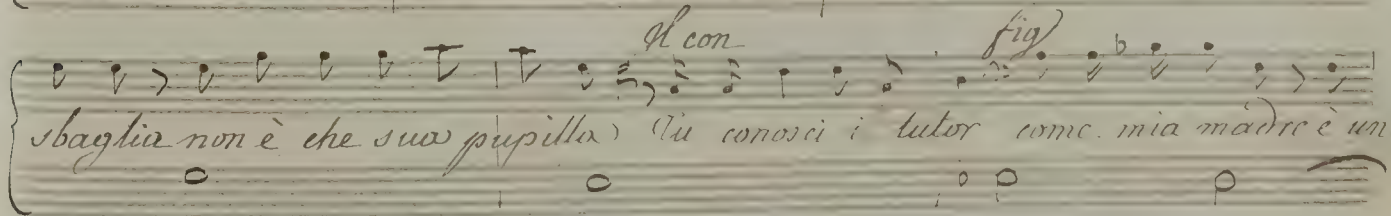 Il con fig
sbaglia non è che sua pupilla) Tu conosci i tutor come mia madre è un